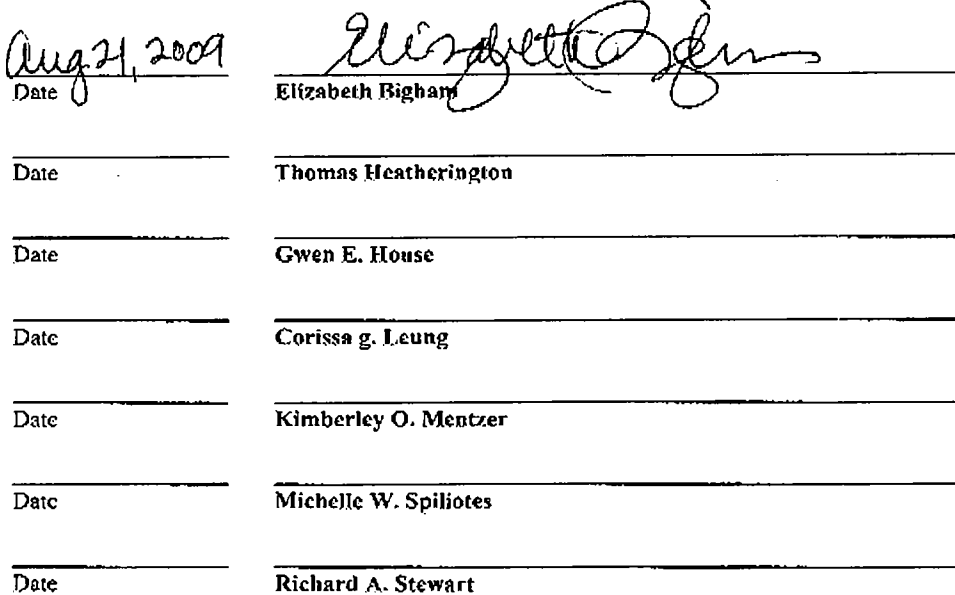 Aug 21, 2009 Elizabeth Bigham
Date Elizabeth Bigham
Date Thomas Heatherington
Date Gwen E. House
Date Corissa g. Leung
Date Kimberley O. Mentzer
Date Michelle W. Spiliotes
Date Richard A. Stewart